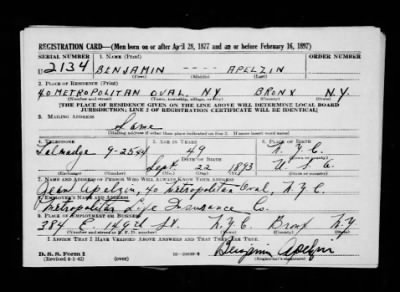 REGISTRATION CARD—(Men born on or after April 28, 1877 and on or before February 16, 1897)
SERIAL NUMBER 1. NAME (Print) ORDER NUMBER
U 2134 BENJAMIN ---- APELZIN
(First) (Middle) (Last)
2. PLACE OF RESIDENCE (Print)
40 METROPOLITAN OVAL, NY BRONX N.Y.
(Number and street) (Town, township, village, or city) (County) (State)
[THE PLACE OF RESIDENCE GIVEN ON THE LINE ABOVE WILL DETERMINE LOCAL BOARD
JURISDICTION; LINE 2 OF REGISTRATION CERTIFICATE WILL BE IDENTICAL]
3. MAILING ADDRESS
Same
[Mailing address if other than place indicated on line 2. If same insert word same]
4. TELEPHONE 5. AGE IN YEARS 6. PLACE OF BIRTH
Talmadge 9-2544 49 N.Y.C.
DATE OF BIRTH
Sept 22 1893 U.S.A.
7. NAME AND ADDRESS OF PERSON WHO WILL ALWAYS KNOW YOUR ADDRESS
Jean Apelzin, 40 Metropolitan Oval, N.Y.C.
8. EMPLOYER'S NAME AND ADDRESS
Metropolitan Life Insurance Co.
9. PLACE OF EMPLOYMENT OR BUSINESS
384 E 149th St. N.Y.C. Bronx N.Y.
I AFFIRM THAT I HAVE VERIFIED ABOVE ANSWERS AND THAT THEY ARE TRUE.
D. S. S. Form 1
(Revised 4-1-42) (over)
Benjamin Apelzin